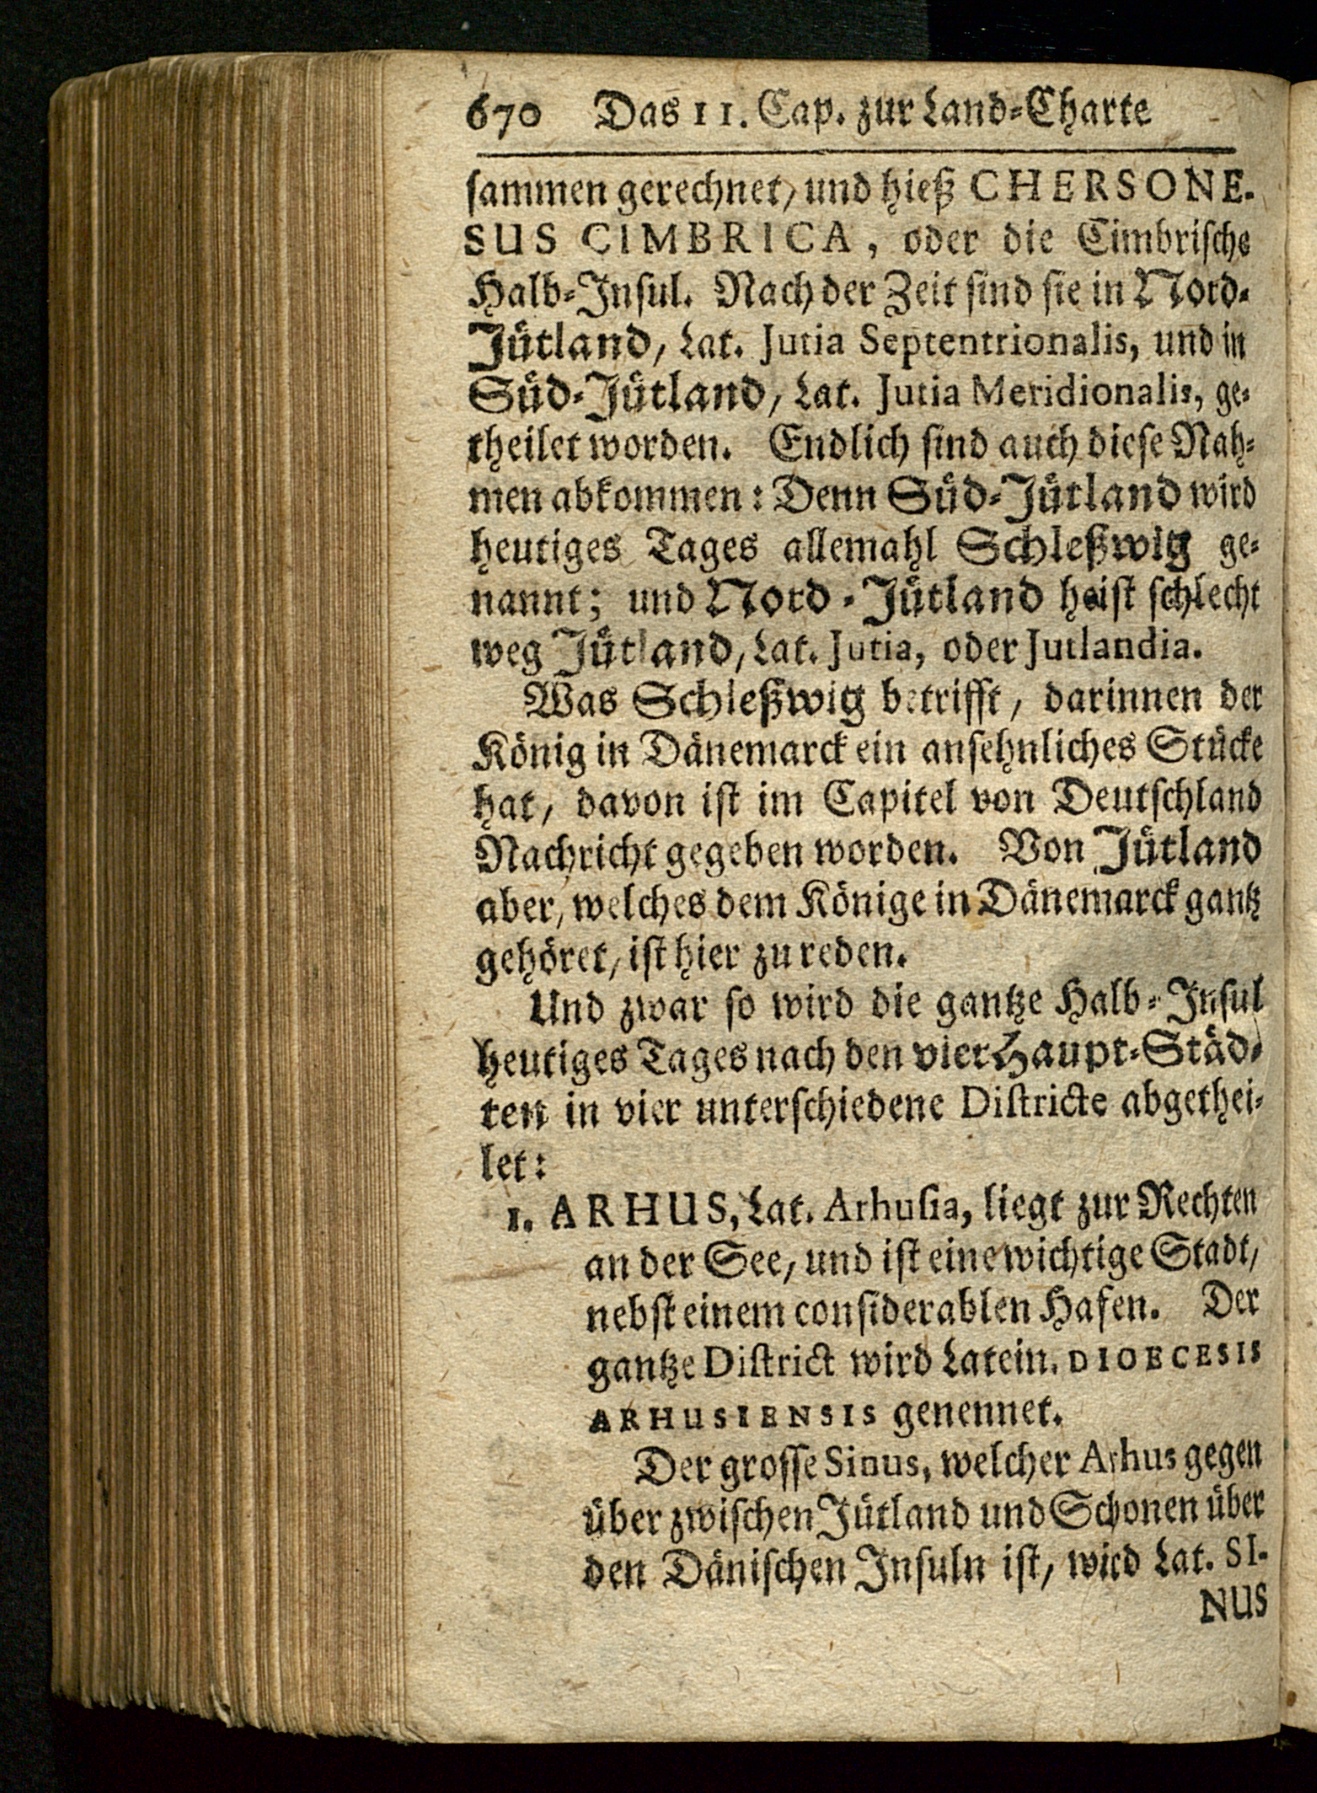 670 Das II. Cap. zur Land-Charte
sammen gerechnet/ und hieß CHERSONE-
SUS CIMBRICA, oder die Cimbrische
Halb-Insul. Nach der Zeit sind sie in Nord-
Jütland/ Lat. Jutia Septentrionalis, und in
Süd-Jütland/ Lat. Jutia Meridionalis, ge-
theilet worden. Endlich sind auch diese Nah-
men abkommen: Denn Süd-Jütland wird
heutiges Tages allemahl Schleßwig ge-
nannt; und Nord-Jütland heist schlecht
weg Jütland/ Lat. Jutia, oder Jutlandia.
Was Schleßwig betrifft/ darinnen der
König in Dänemarck ein ansehnliches Stücke
hat/ davon ist im Capitel von Deutschland
Nachricht gegeben worden. Von Jütland
aber/ welches dem Könige in Dänemarck gantz
gehöret/ ist hier zu reden.
Und zwar so wird die gantze Halb-Insul
heutiges Tages nach den vier Haupt-Städ-
ten in vier unterschiedene Districte abgethei-
let:
1. ARHUS, Lat. Arhusia, liegt zur Rechten
an der See/ und ist eine wichtige Stadt/
nebst einem considerablen Hafen. Der
gantze District wird Latein. DIOECESIS
ARHUSIENSIS genennet.
Der grosse Sinus, welcher Arhus gegen
über zwischen Jütland und Schonen über
den Dänischen Insuln ist/ wird Lat. SI-
NUS